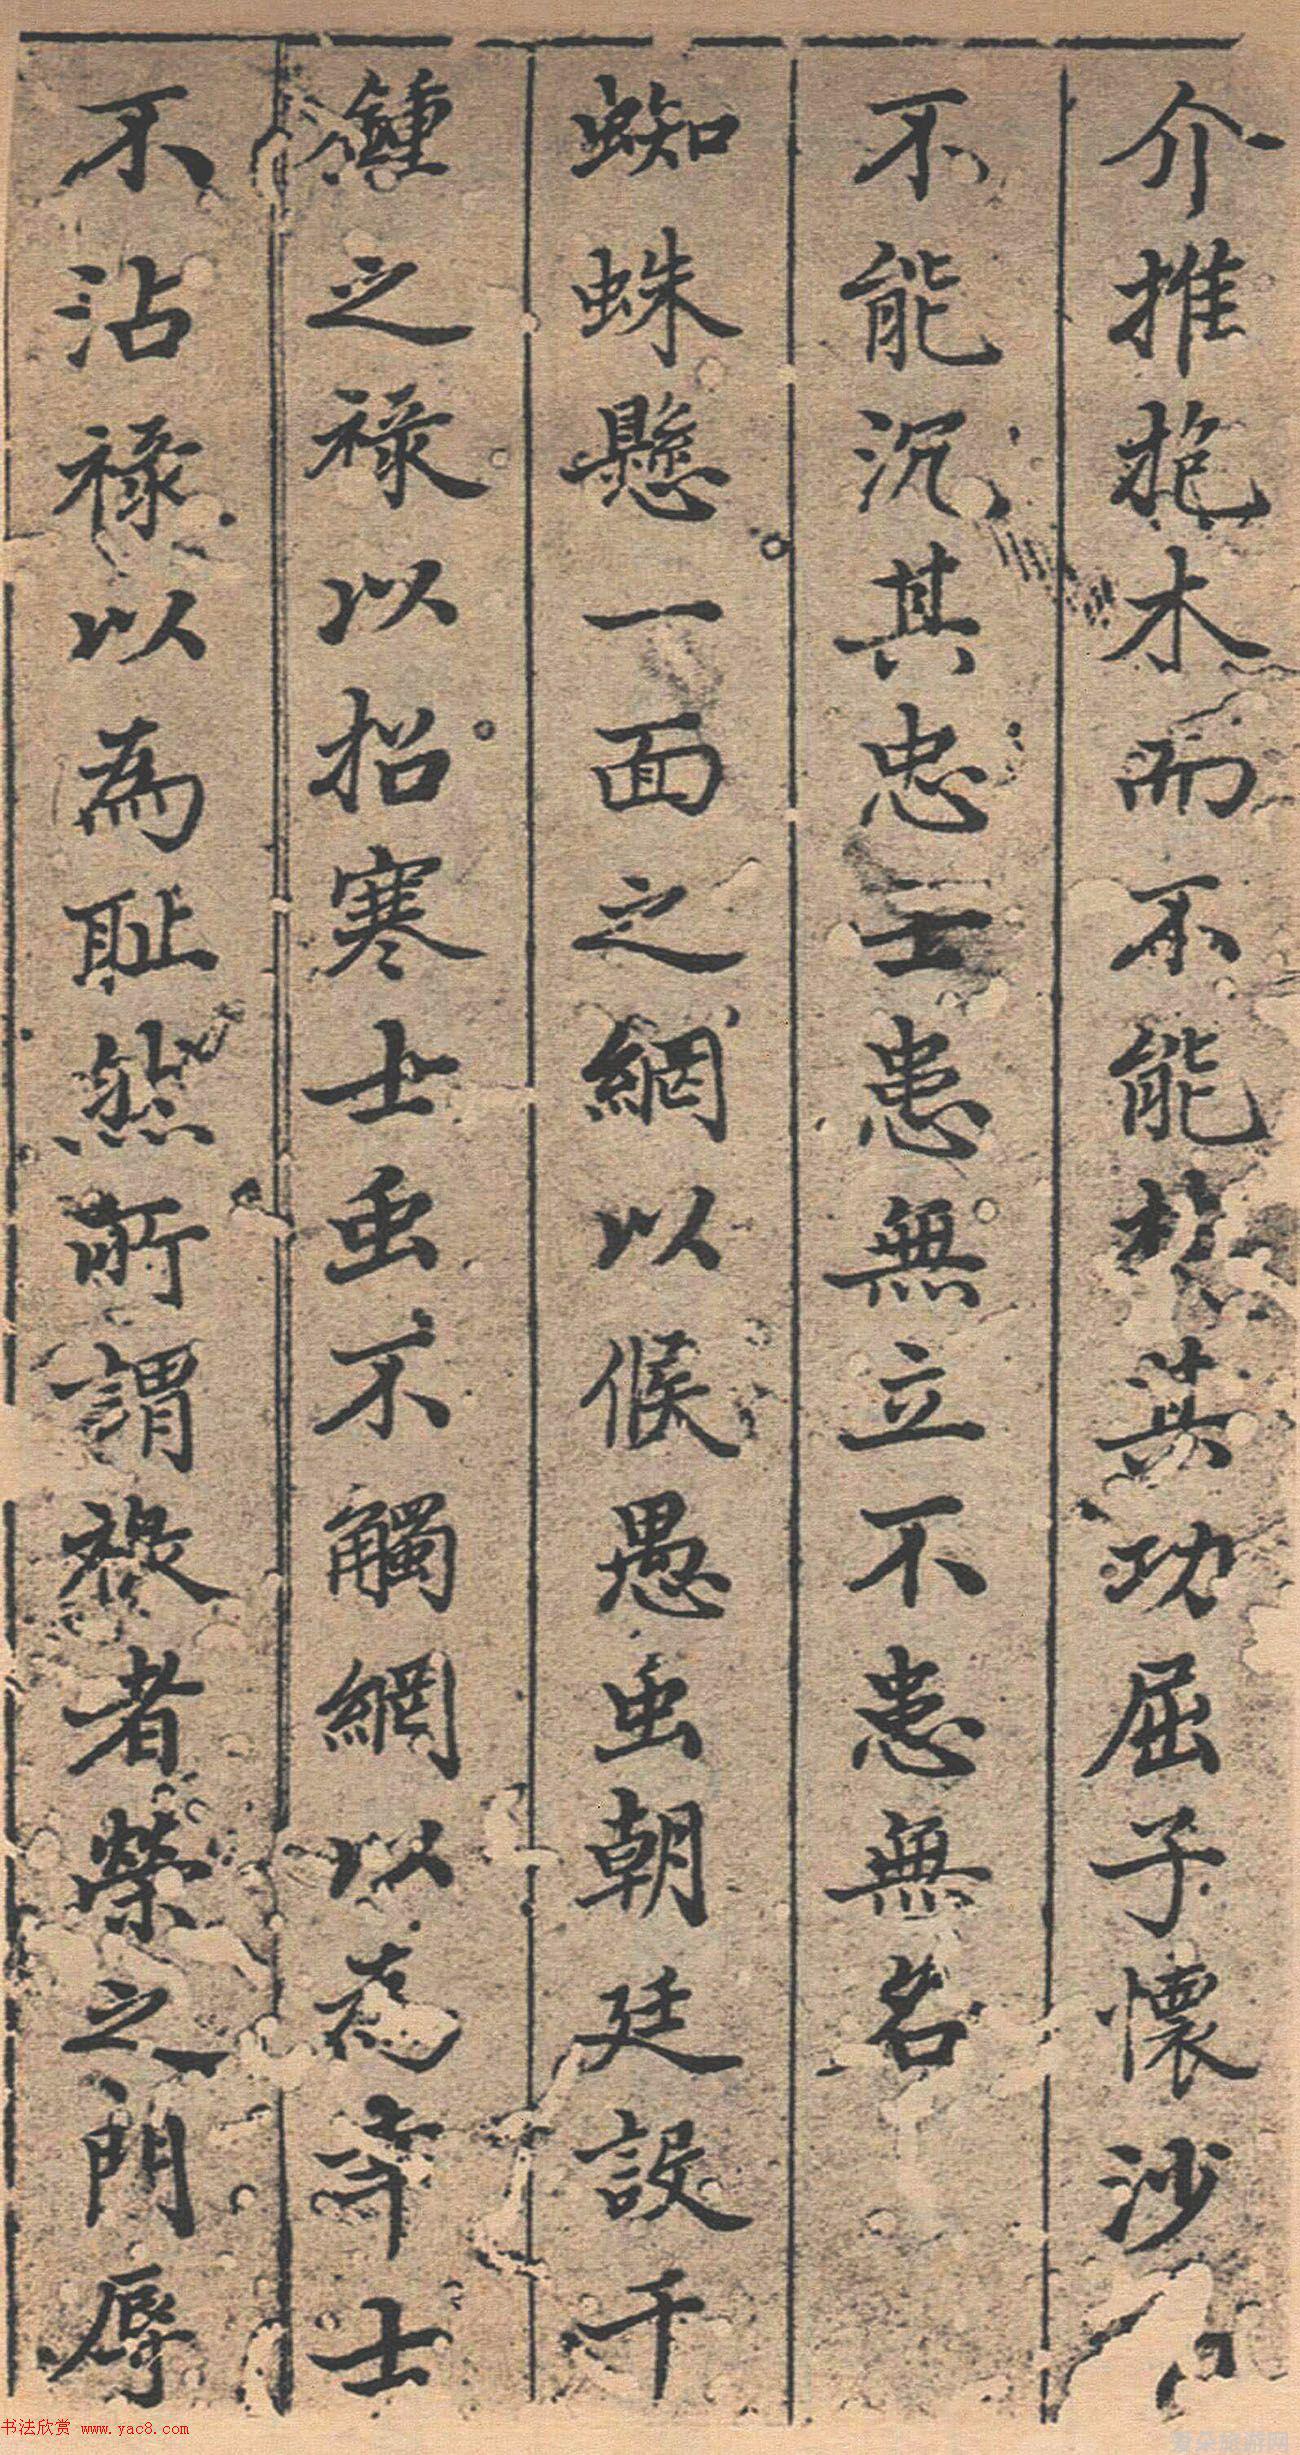 介推抱木而不能焚其功屈子懷沙
不能沉其忠士患無立不患無名
蜘蛛懸一面之網以候愚虫朝廷設千
鍾之祿以招寒士虫不觸網以為幸士
不沾祿以為耻然所謂祿者榮之門辱
书法欣赏 www.yac8.com